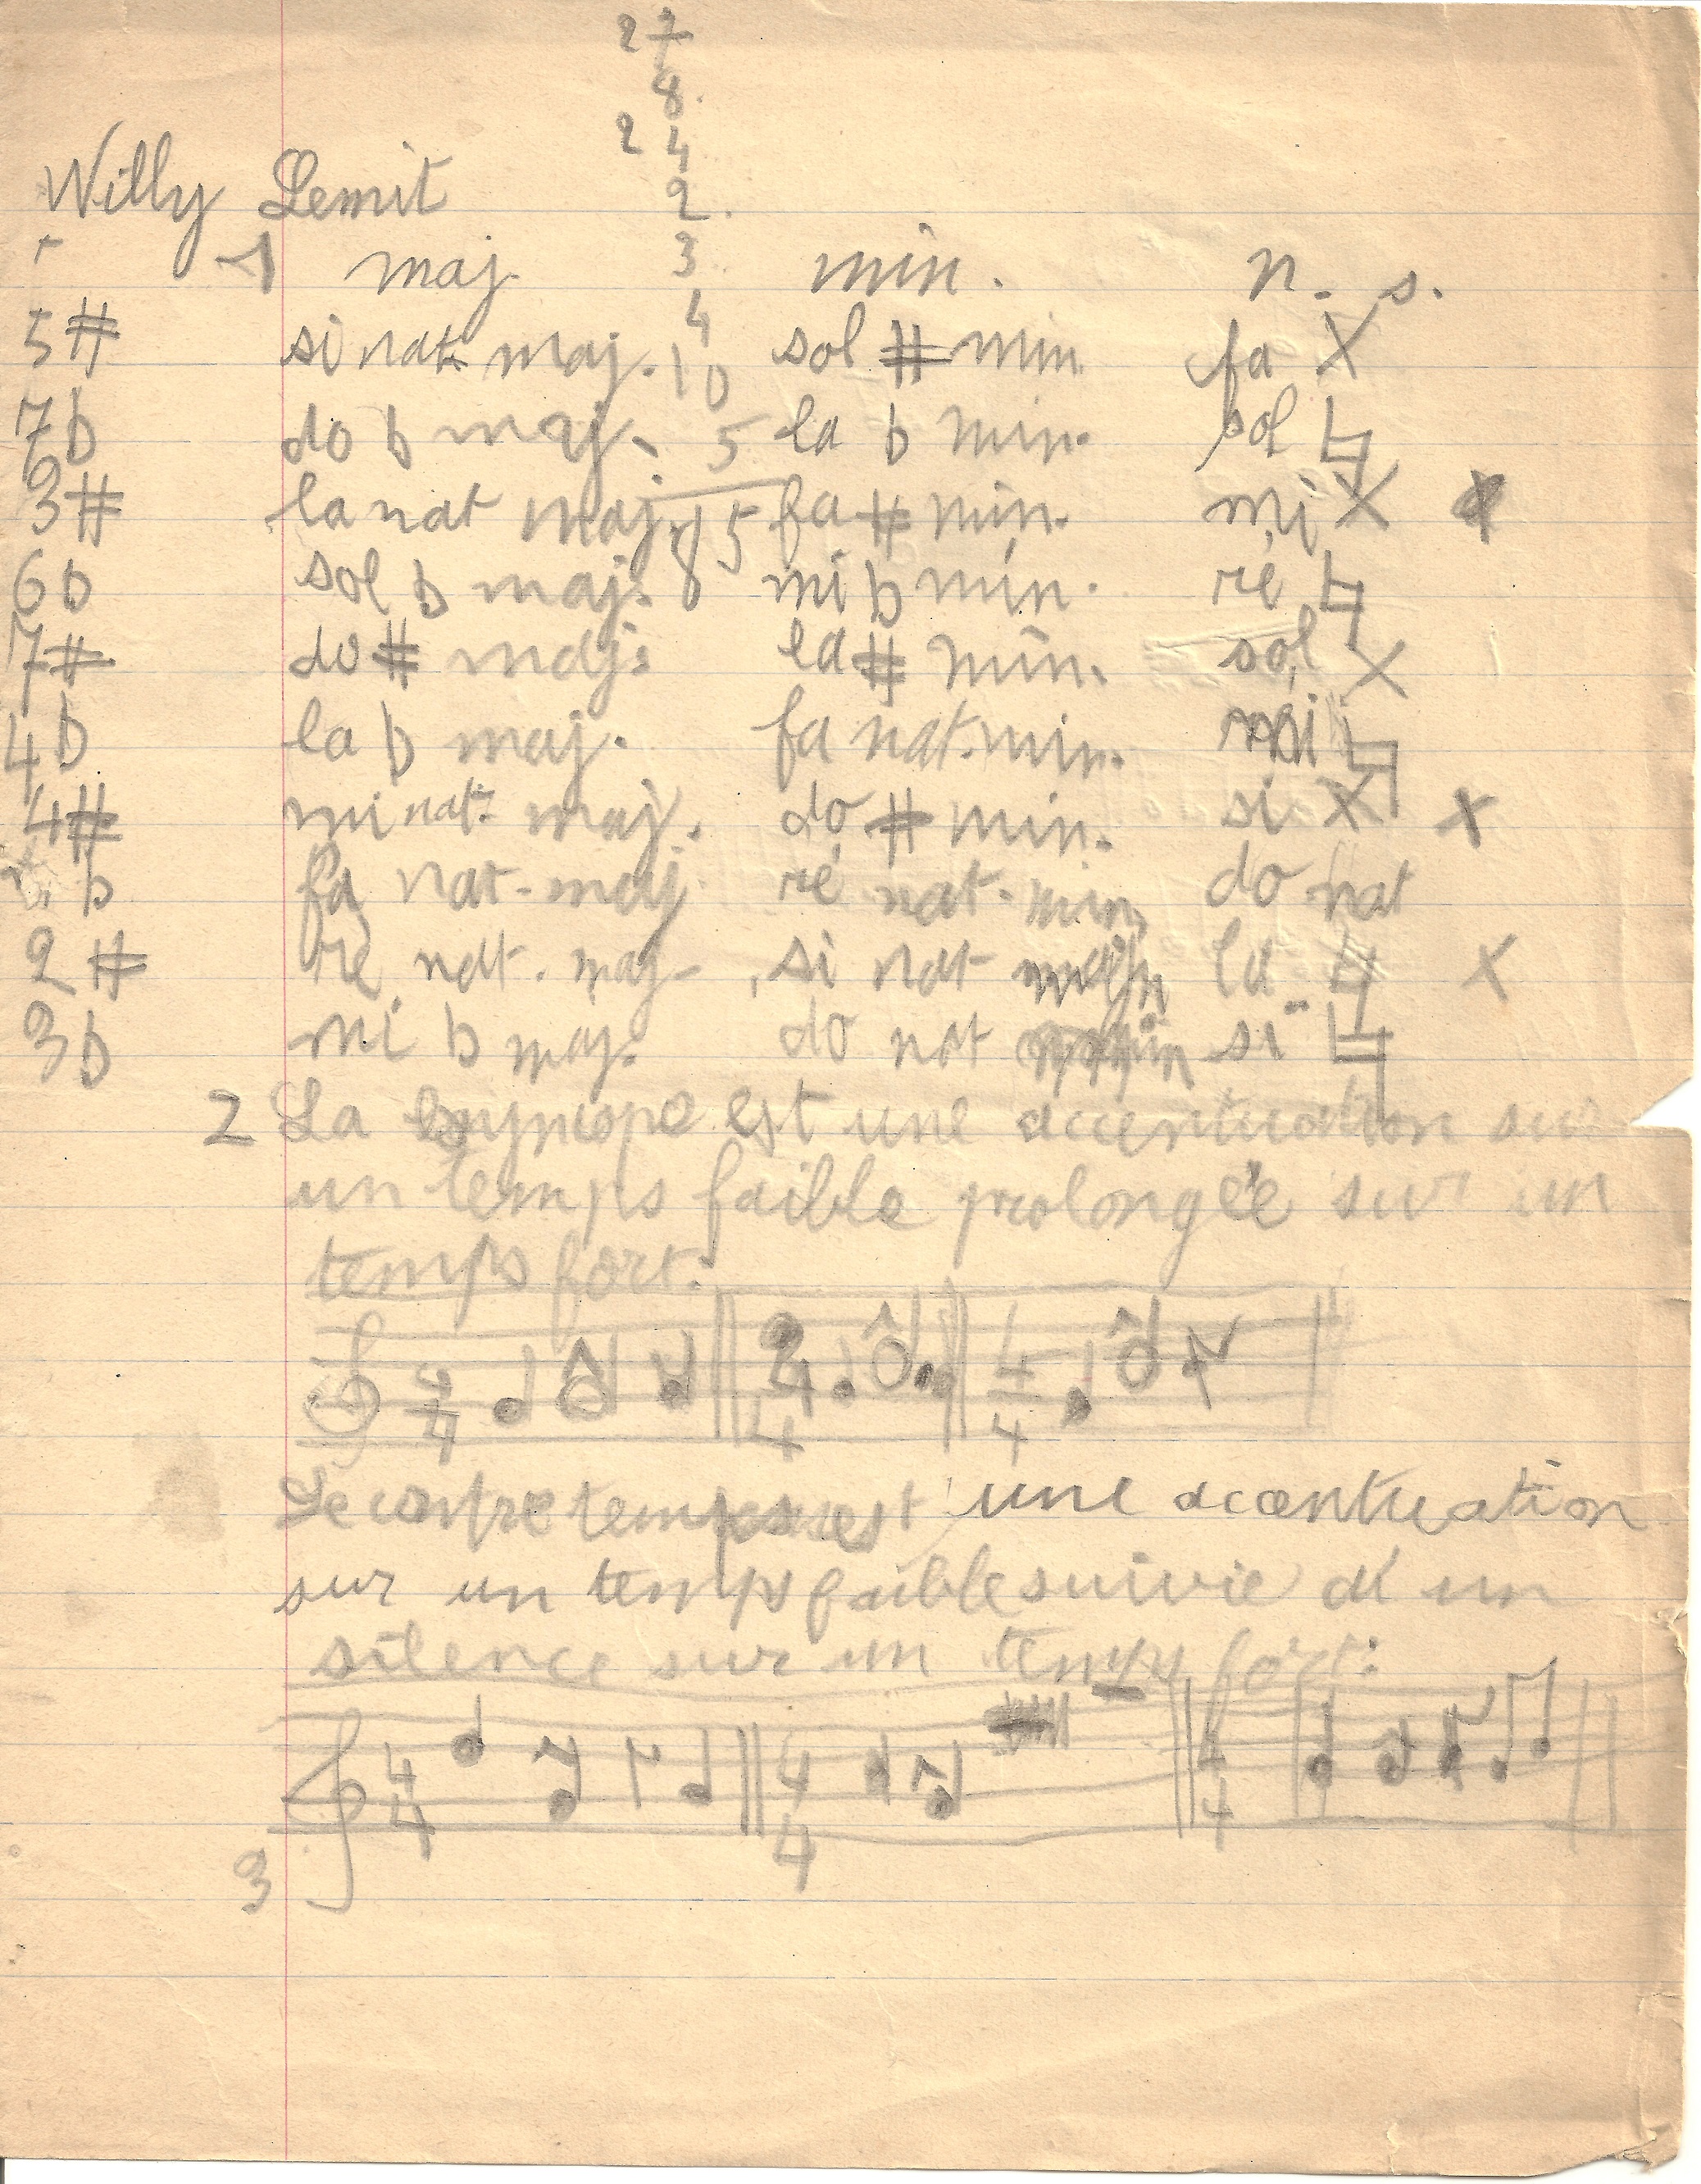 2 7
8
2 4
2
3
4
10
5
85
Willy Lemit
1 maj. min. n. s.
5# si nat. maj. sol # min fa X
7b do b maj. la b min. sol ♮
3# la nat maj. fa # min. mi X
6b sol b maj. mi b min. ré ♮
7# do # maj. la # min. sol X
4b la b maj. fa nat. min. mi ♮
4# mi nat. maj. do # min. si X x
b fa nat. maj. ré nat. min, do nat
2# ré nat. maj. si nat min la X
3b mi b maj. do nat min si ♮
2 La syncope est une accentuation sur
un temps faible prolongée sur un
temps fort:
4/4 4/4
Le contretemps est une accentuation
sur un temps faible suivie d'un
silence sur un temps fort:
4/4 4/4 4/4
3